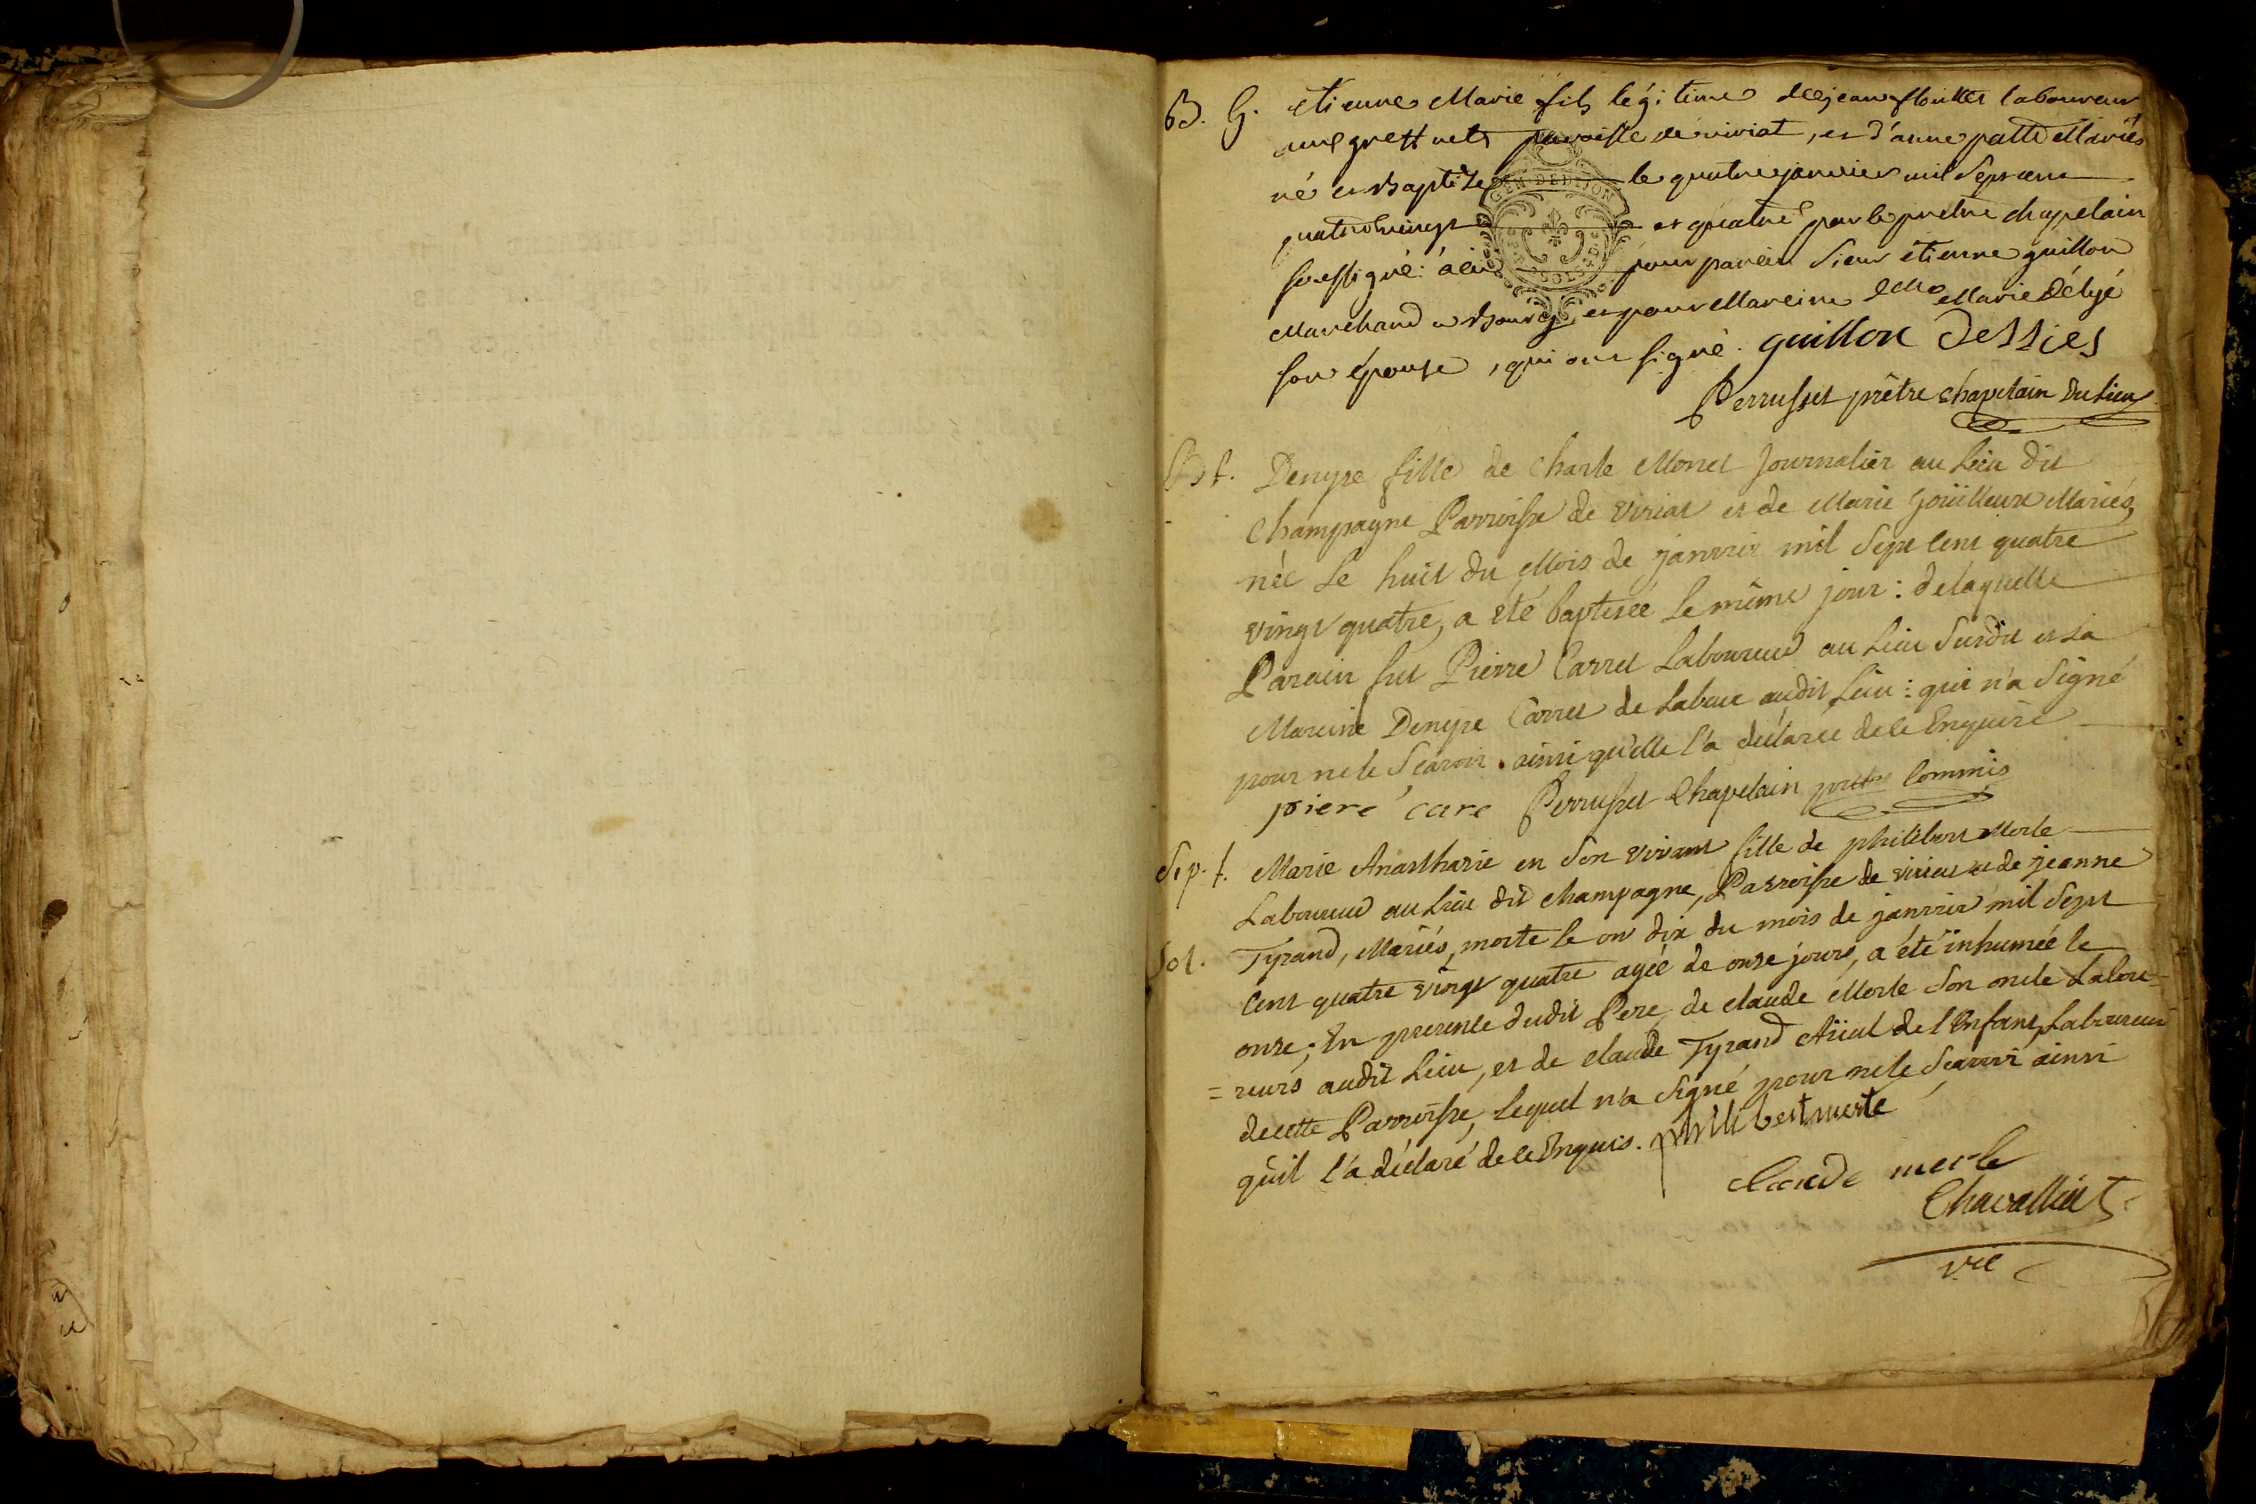 B. G. étienne Marie fils légitime de jean flouttet laboureur
aux greffuets paroisse de viriat, et d'anne patte Mariés
né et Baptizé le quatre janvier mil Sept cent
quatre vingt et quatre par le prêtre chapelain
soussigné: a eu pour parein Sieur étienne guillon
Marchand a Bourg et pour Mareine dlle Marie
son épouse, qui ont signé. guillon
Perrusset prêtre Chapelain du Lieu
GEN DE DIJON
Bt. f. Denyse fille de Charle Monet Journalier au Lieu dit
Champagne Parroisse de Viriat et de Marie Goüilleux Mariés,
née Le huit du Mois de janvier mil Sept Cent quatre
vingt quatre, a été baptisée Le même jour: de laquelle
Parain fut Pierre Carret Laboureur au Lieu Susdit et La
Mareine Denyse Carret de Labeur audit Lieu: qui n'a Signé
pour ne le Scavoir. ainsi qu'elle l'a déclarée de ce Enquise
piere care Perrusset Chapelain prêtre Commis
Sep. f. Marie Anasthasie en Son vivant fille de philibert Merle
Laboureur au Lieu dit Champagne, Parroisse de viriat et de jeanne
Sol. Tyrand, Mariés, morte le dix du mois de janvier mil Sept
Cent quatre vingt quatre agée de onse jours, a été inhumée le
onse; En presence dudit Pere, de claude Merle Son oncle Labou
= reurs audit Lieu, et de claude Tyrand Aïeul de l'Enfant, Laboureur
de cette Parroisse, Lequel n'a Signé pour ne le Scavoir ainsi
qu'il l'a déclaré de ce Enquis. philibert merle
claude merle
Chavallin
vic